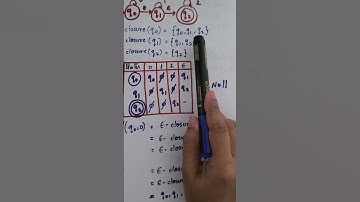 q₀ ε q₁ ε q₂ 2
closure(q₀) = {q₀, q₁, q₂}
closure(q₁) = {q₁, q₂
closure(q₂) = {q₂}
States 0 1 2 ε
q₀ q₀ φ φ q₁
q₁ φ q₁ φ q₂
q₂ φ φ q₂ -
Null
(q₀,0) = ε-closure
= ε-closu
= ε-closu
= ε-clos
= ε-clos
= q₀, q₁,